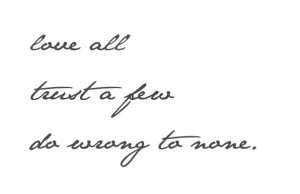 love all
trust a few
do wrong to none.